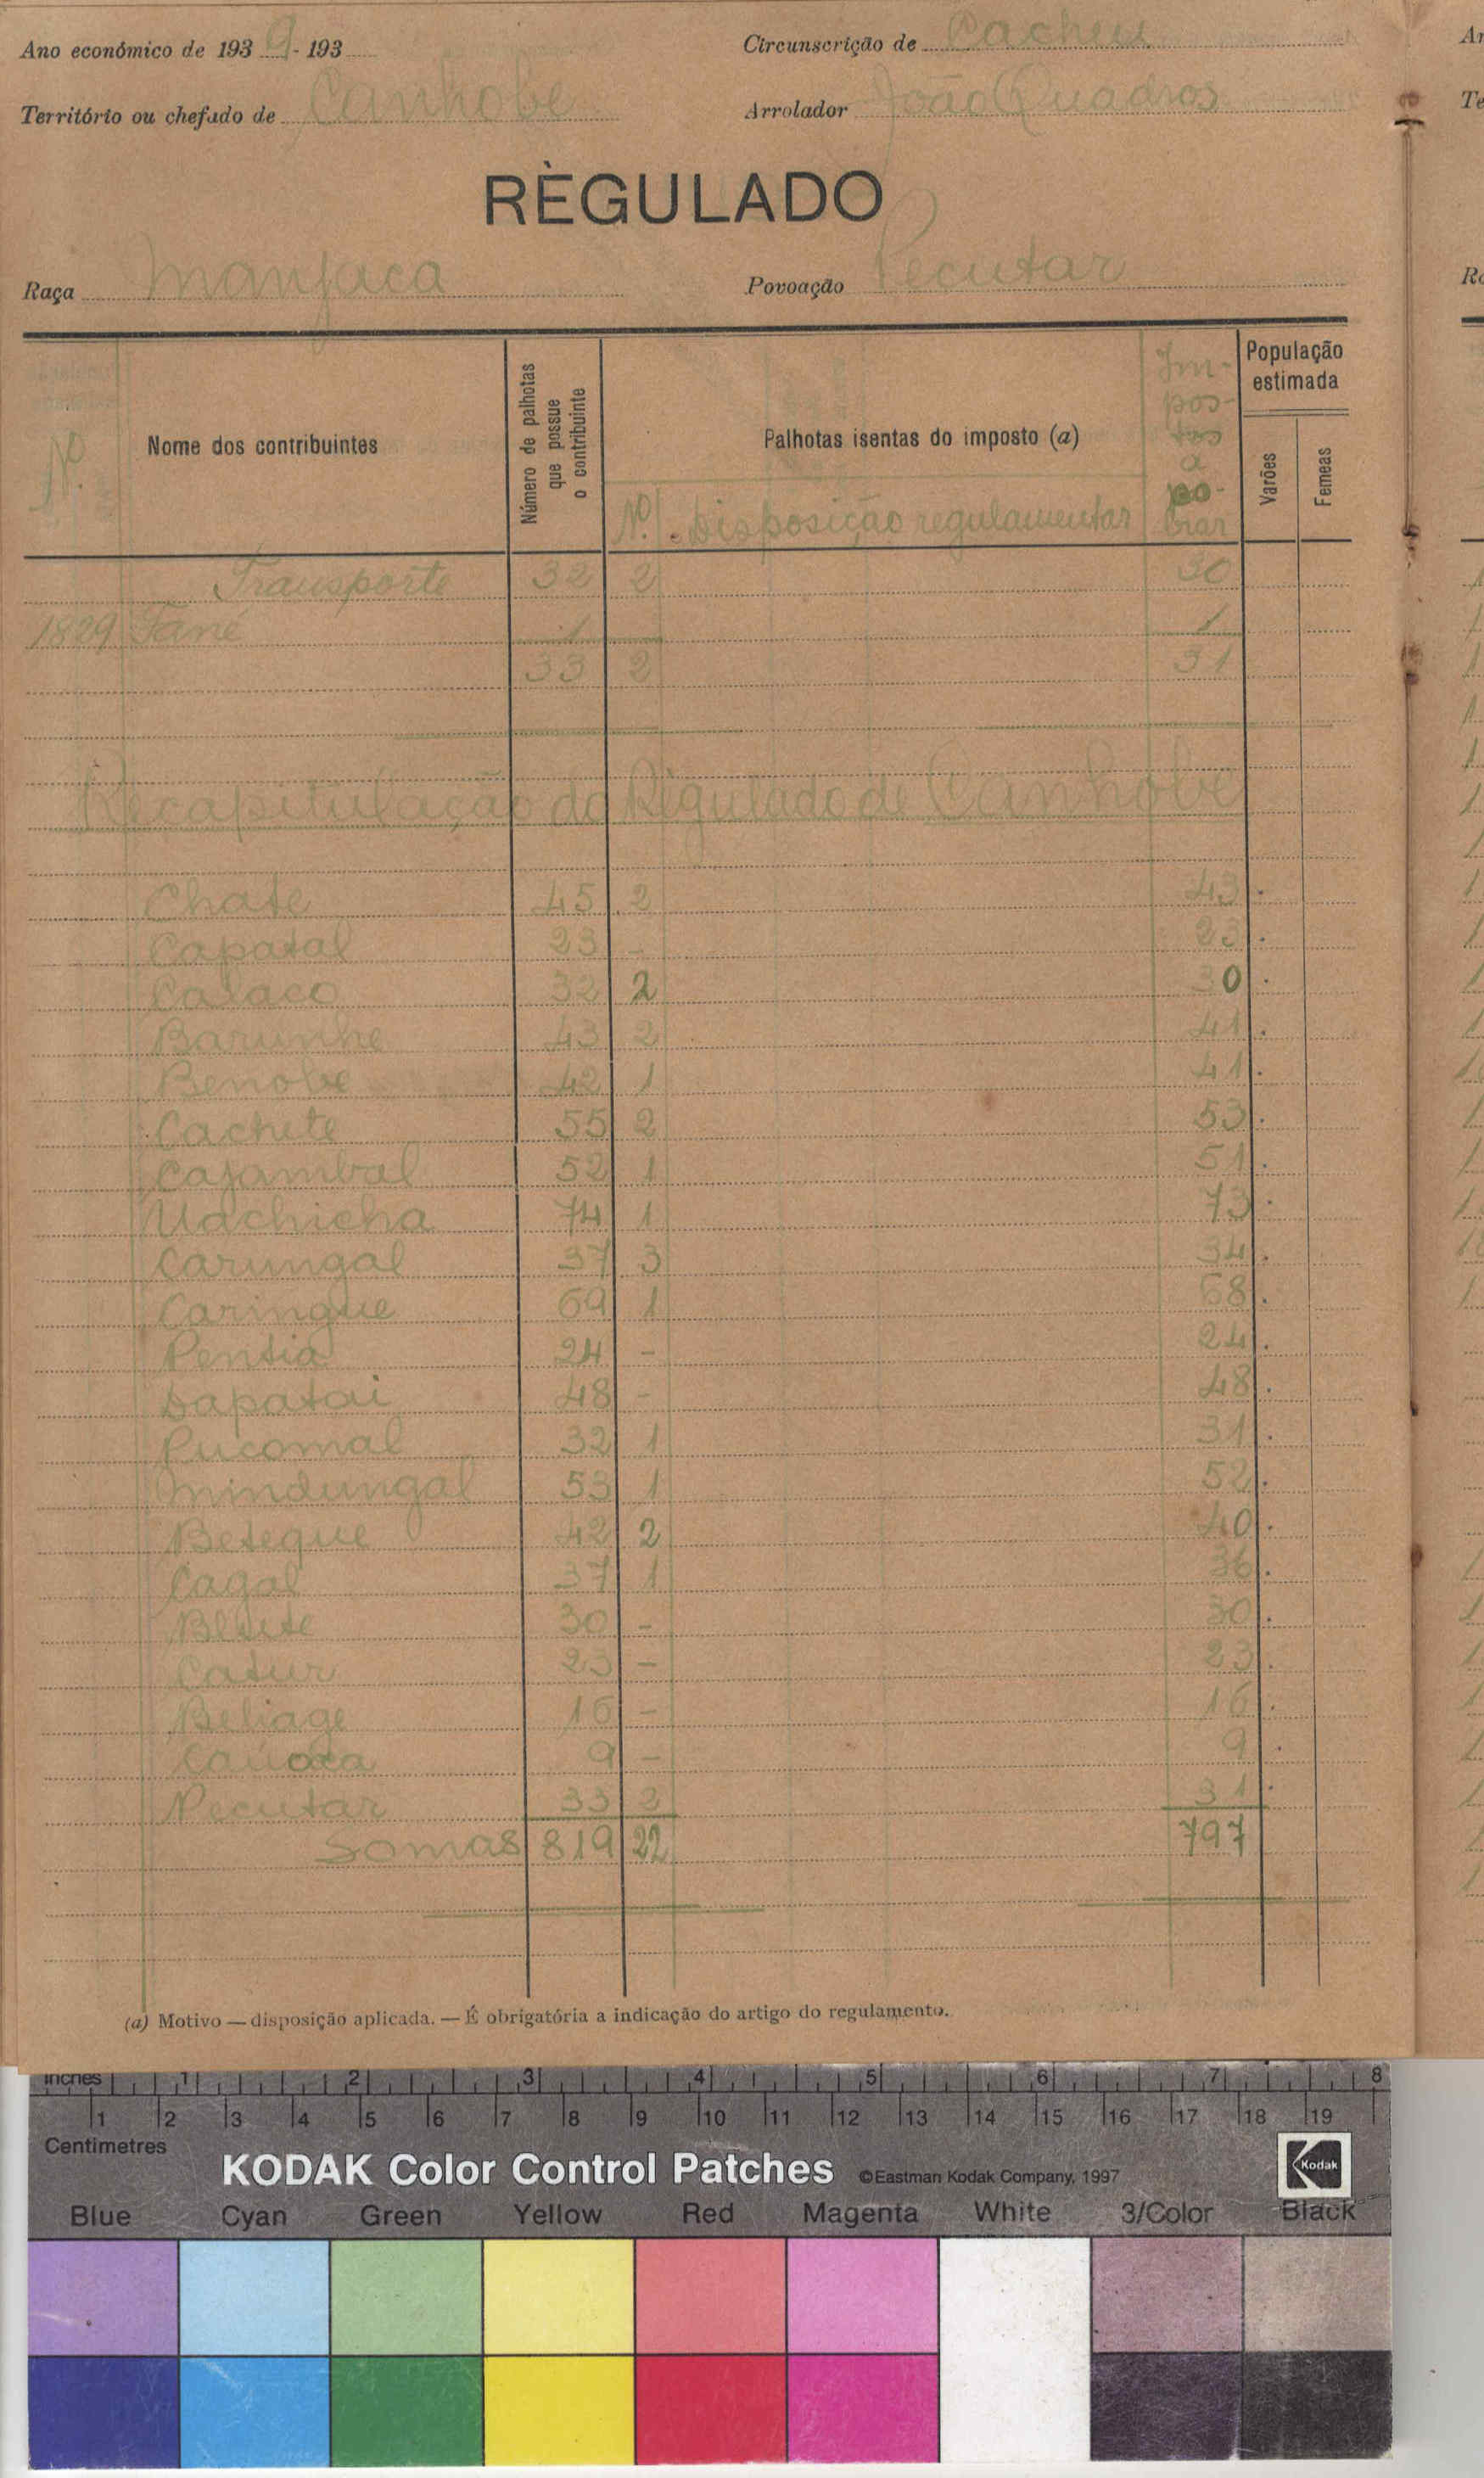 Ano económico de 1939 - 193
Circunscrição de Cacheu
Território ou chefado de Canhobe
Arrolador João Quadros
RÈGULADO
Raça Manjaca
Povoação Pecutar
Nº
Nome dos contribuintes
Número de palhotas que possue o contribuinte
Palhotas isentas do imposto (a)
Nº. Disposição regulamentar
Im-
pos-
tos
a
co-
brar
População estimada
Varões
Femeas
Transporte 32 2 30
1829 Tané 1 1
33 2 31
Recapitulação do Régulado de Canhobe
Chate 45 2 43
Capatal 23 - 23
Calaco 32 2 30
Barunhe 43 2 41
Benobe 42 1 41
Cachete 55 2 53
Cajambal 52 1 51
Uachicha 74 1 73
Carungal 37 3 34
Caringue 69 1 68
Pentia 24 - 24
Dapatai 48 - 48
Pucomal 32 1 31
Mindungal 53 1 52
Betegue 42 2 40
Cagal 37 1 36
30 - 30
Catur 23 - 23
Beliage 16 - 16
9 - 9
Pecutar 33 2 31
Somas 819 22 797
(a) Motivo — disposição aplicada. — É obrigatória a indicação do artigo do regulamento.
inches 1 2 3 4 5 6 7 8
1 2 3 4 5 6 7 8 9 10 11 12 13 14 15 16 17 18 19
Centimetres
KODAK Color Control Patches ©Eastman Kodak Company, 1997 Kodak
Blue Cyan Green Yellow Red Magenta White 3/Color Black